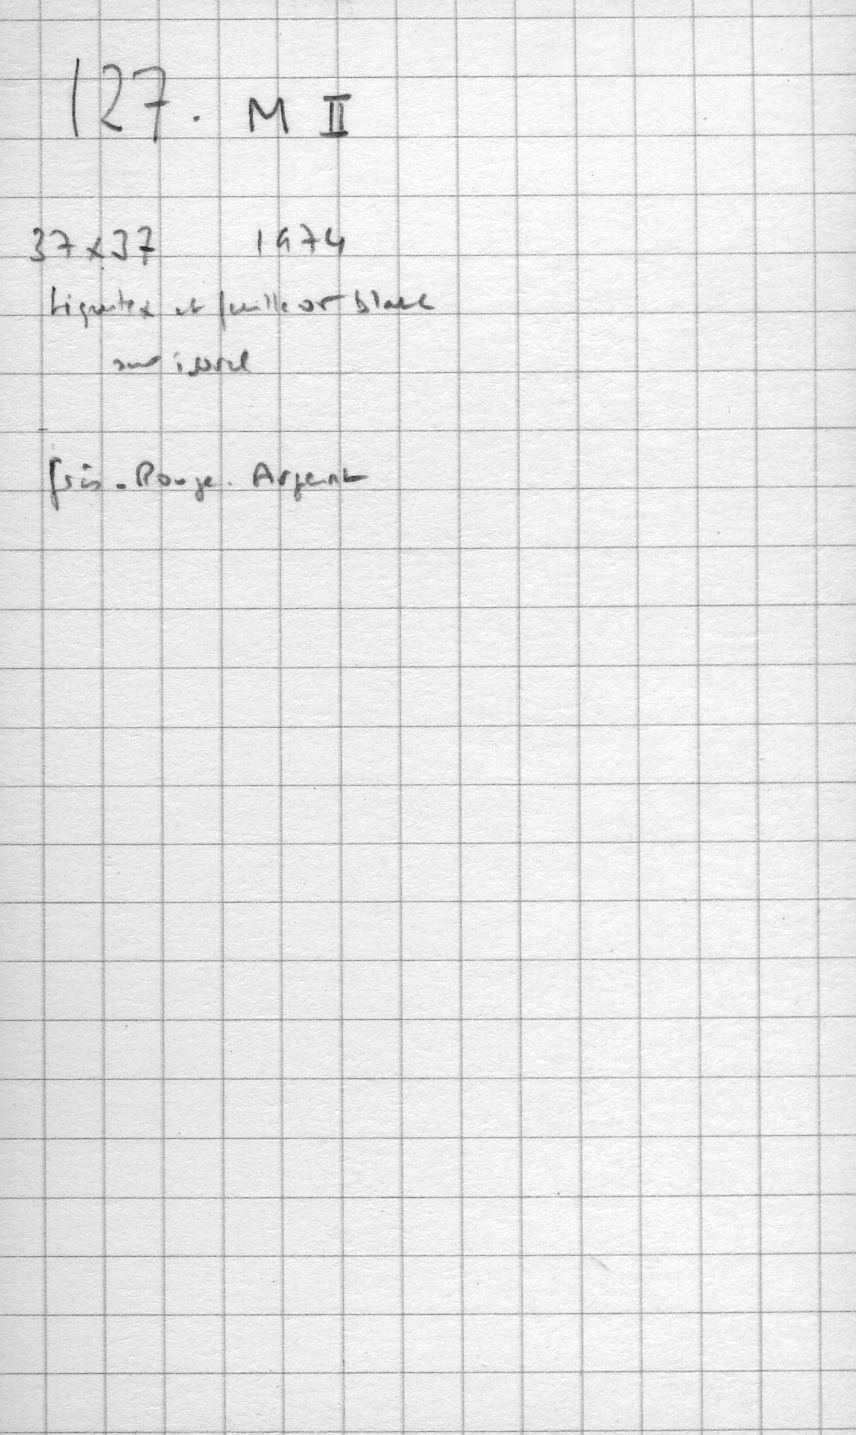 127. M II
37x37 1974
Liquitex et feuille or blanc
sur isorel
Gris - Rouge. Argent